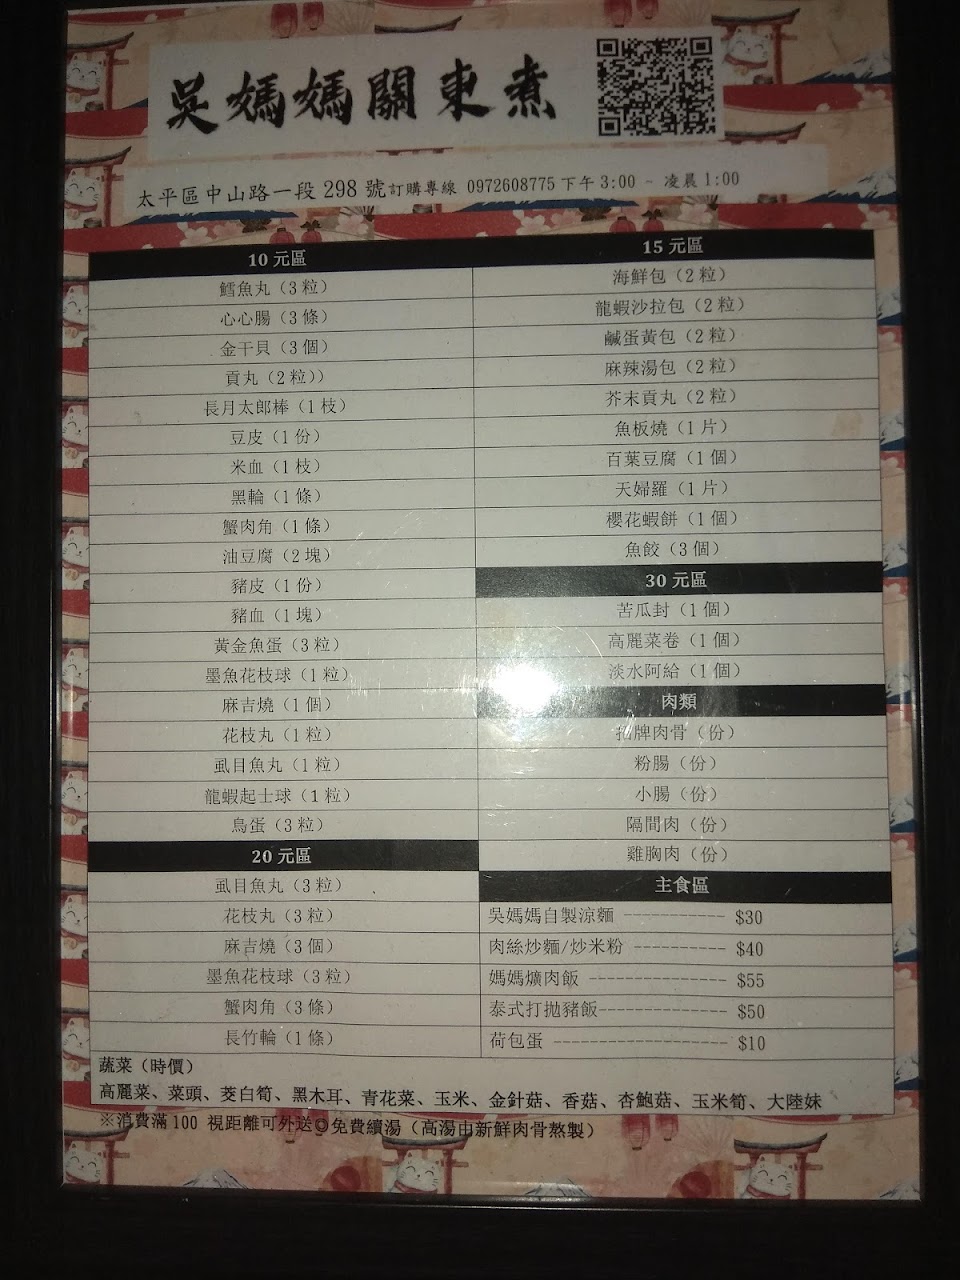 吳媽媽關東煮
太平區中山路一段 298 號訂購專線 0972608775 下午 3:00 ~ 凌晨 1:00
10 元區
鱈魚丸（3 粒）
心心腸（3 條）
金干貝（3 個）
貢丸（2 粒））
長月太郎棒（1 枝）
豆皮（1 份）
米血（1 枝）
黑輪（1 條）
蟹肉角（1 條）
油豆腐（2 塊）
豬皮（1 份）
豬血（1 塊）
黃金魚蛋（3 粒）
墨魚花枝球（1 粒）
麻吉燒（1 個）
花枝丸（1 粒）
虱目魚丸（1 粒）
龍蝦起士球（1 粒）
鳥蛋（3 粒）
20 元區
虱目魚丸（3 粒）
花枝丸（3 粒）
麻吉燒（3 個）
墨魚花枝球（3 粒）
蟹肉角（3 條）
長竹輪（1 條）
15 元區
海鮮包（2 粒）
龍蝦沙拉包（2 粒）
鹹蛋黃包（2 粒）
麻辣湯包（2 粒）
芥末貢丸（2 粒）
魚板燒（1 片）
百葉豆腐（1 個）
天婦羅（1 片）
櫻花蝦餅（1 個）
魚餃（3 個）
30 元區
苦瓜封（1 個）
高麗菜卷（1 個）
淡水阿給（1 個）
肉類
招牌肉骨（份）
粉腸（份）
小腸（份）
隔間肉（份）
雞胸肉（份）
主食區
吳媽媽自製涼麵 ------------ $30
肉絲炒麵/炒米粉 ---------- $40
媽媽爌肉飯 --------------- $55
泰式打拋豬飯-------------- $50
荷包蛋 ------------------- $10
蔬菜（時價）
高麗菜、菜頭、茭白筍、黑木耳、青花菜、玉米、金針菇、香菇、杏鮑菇、玉米筍、大陸妹
※消費滿 100 視距離可外送◎免費續湯（高湯由新鮮肉骨熬製）